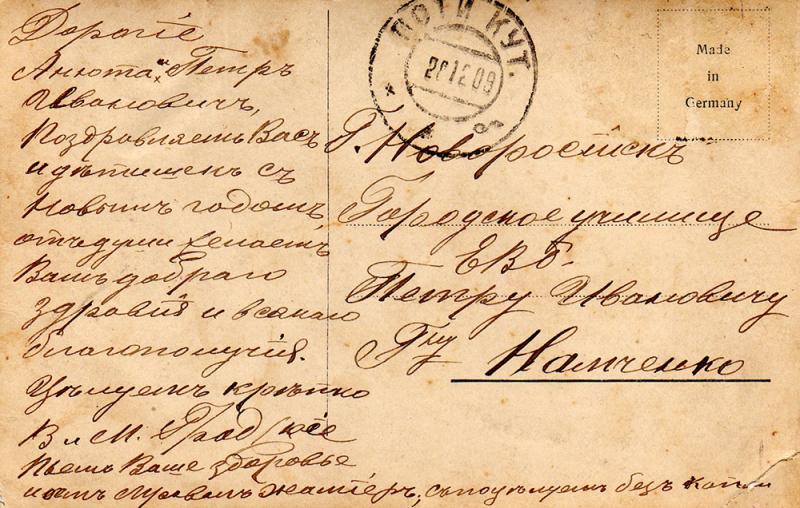 Дорогіе
Анюта и Петръ
Ивановичъ,
Поздравляемъ Васъ
и дѣтишекъ съ
новымъ годомъ,
отъ души желаемъ
Вамъ добраго
здравія и всякаго
благополучія.
Цѣлуемъ крѣпко
В и М.
Пьемъ Ваше здоровье
безъ
ПОТИ КУТ.
201209
Made
in
Germany
Г. Новоросійскъ
Городское училище
ЕВБ.
Петру Ивановичу
Гну
Намченко